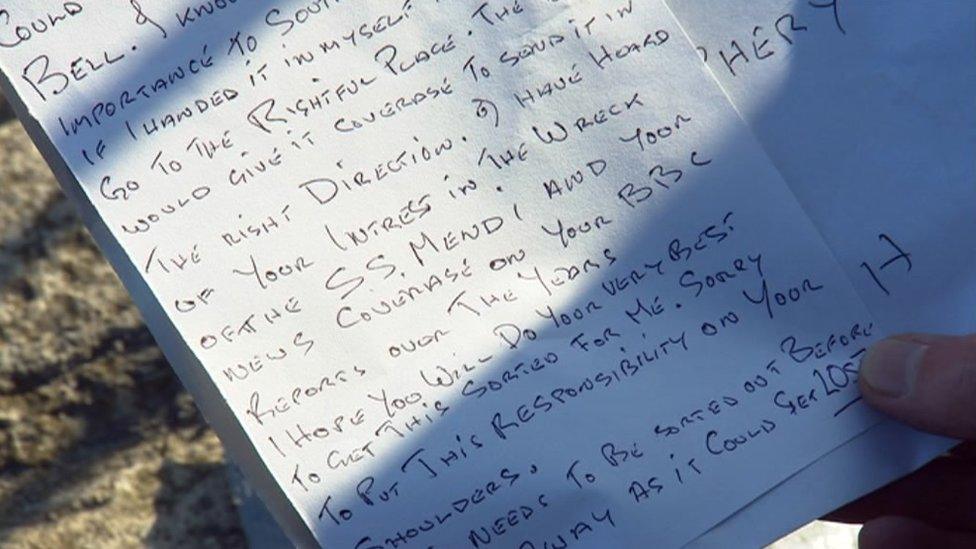 COULD
BELL. I KNOW
IMPORTANCE TO SOUTH
IF I HANDED IT IN MYSELF
GO TO THE RIGHTFUL PLACE. THE
WOULD GIVE IT COVERAGE TO SEND IT IN
THE RIGHT DIRECTION. I HAVE HEARD
OF YOUR INTREST IN THE WRECK
OF THE S.S. MENDI AND YOUR
NEWS COVERAGE ON YOUR BBC
REPORTS OVER THE YEARS
I HOPE YOU WILL DO YOUR VERY BEST
TO GET THIS SORTED FOR ME. SORRY
TO PUT THIS RESPONSIBILITY ON YOUR
SHOULDERS. IT
NEEDS TO BE SORTED OUT BEFORE
AWAY AS IT COULD GET LOST
PHERY